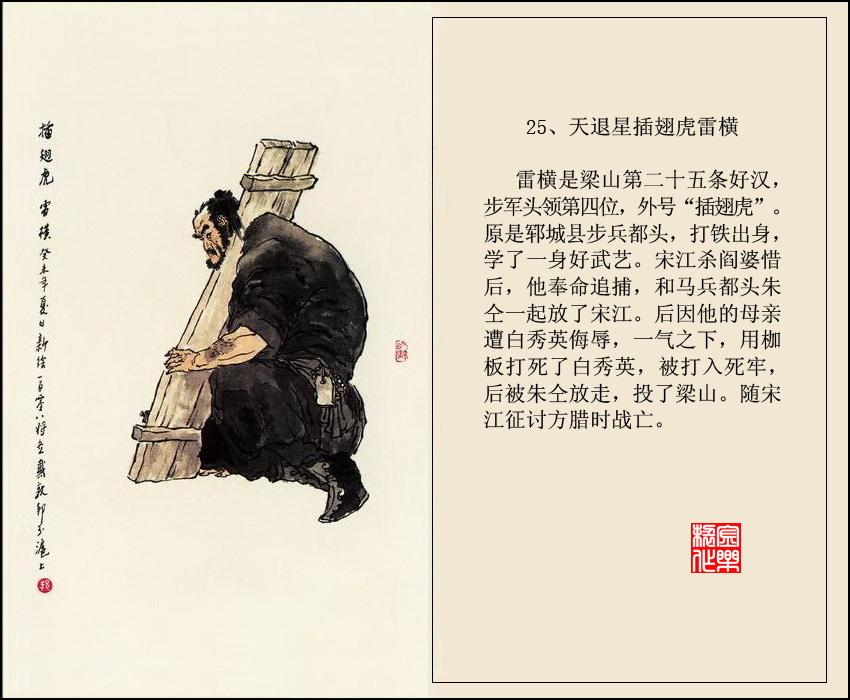 插翅虎 雷横 癸未年夏日新绘一百零八将之 戴敦邦于沪上
25、天退星插翅虎雷横
雷横是梁山第二十五条好汉，
步军头领第四位，外号“插翅虎”。
原是郓城县步兵都头，打铁出身，
学了一身好武艺。宋江杀阎婆惜
后，他奉命追捕，和马兵都头朱
仝一起放了宋江。后因他的母亲
遭白秀英侮辱，一气之下，用枷
板打死了白秀英，被打入死牢，
后被朱仝放走，投了梁山。随宋
江征讨方腊时战亡。